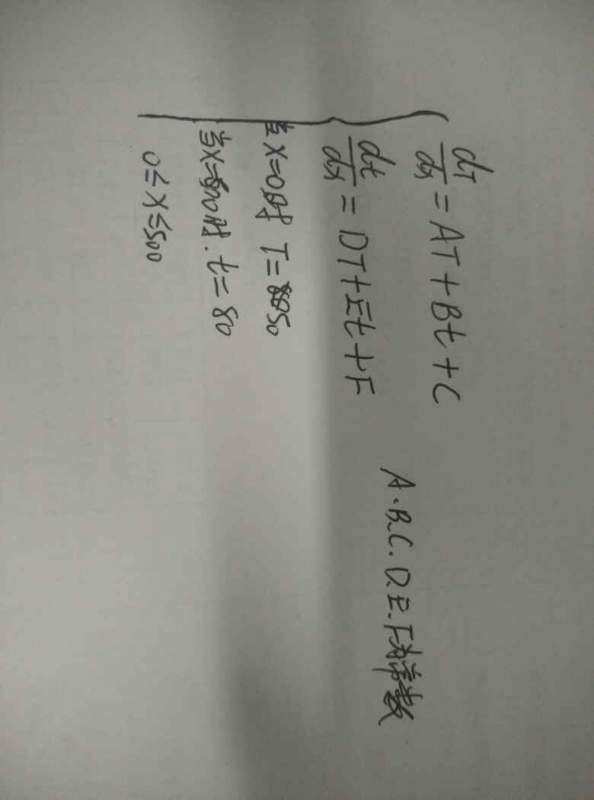 dT/dx = AT + Bt + C
dt/dx = DT + Et + F
A.B.C.D.E.F为常数
当x=0时 T=50
当x=500时. t=80
0≤x≤500